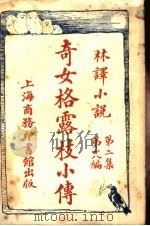 林譯小説
第二集
第十八編
奇女格露枝小傳
上海商務印書館出版